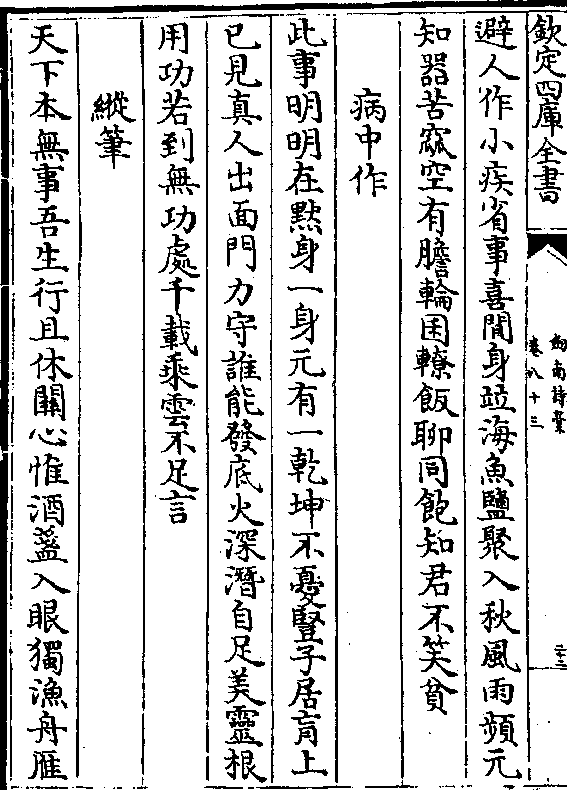 欽定四庫全書
劍南詩稾
卷八十三
二十二
避人作小疾省事喜閒身竝海魚鹽聚入秋風雨頻元
知器苦窳空有膽輪囷轑飯聊同飽知君不笑貧
病中作
此事明明在黙身一身元有一乾坤不憂豎子居肓上
已見真人出面門力守誰能發底火深潛自足美靈根
用功若到無功處千載乘雲不足言
縱筆
天下本無事吾生行且休關心惟酒盞入眼獨漁舟雁